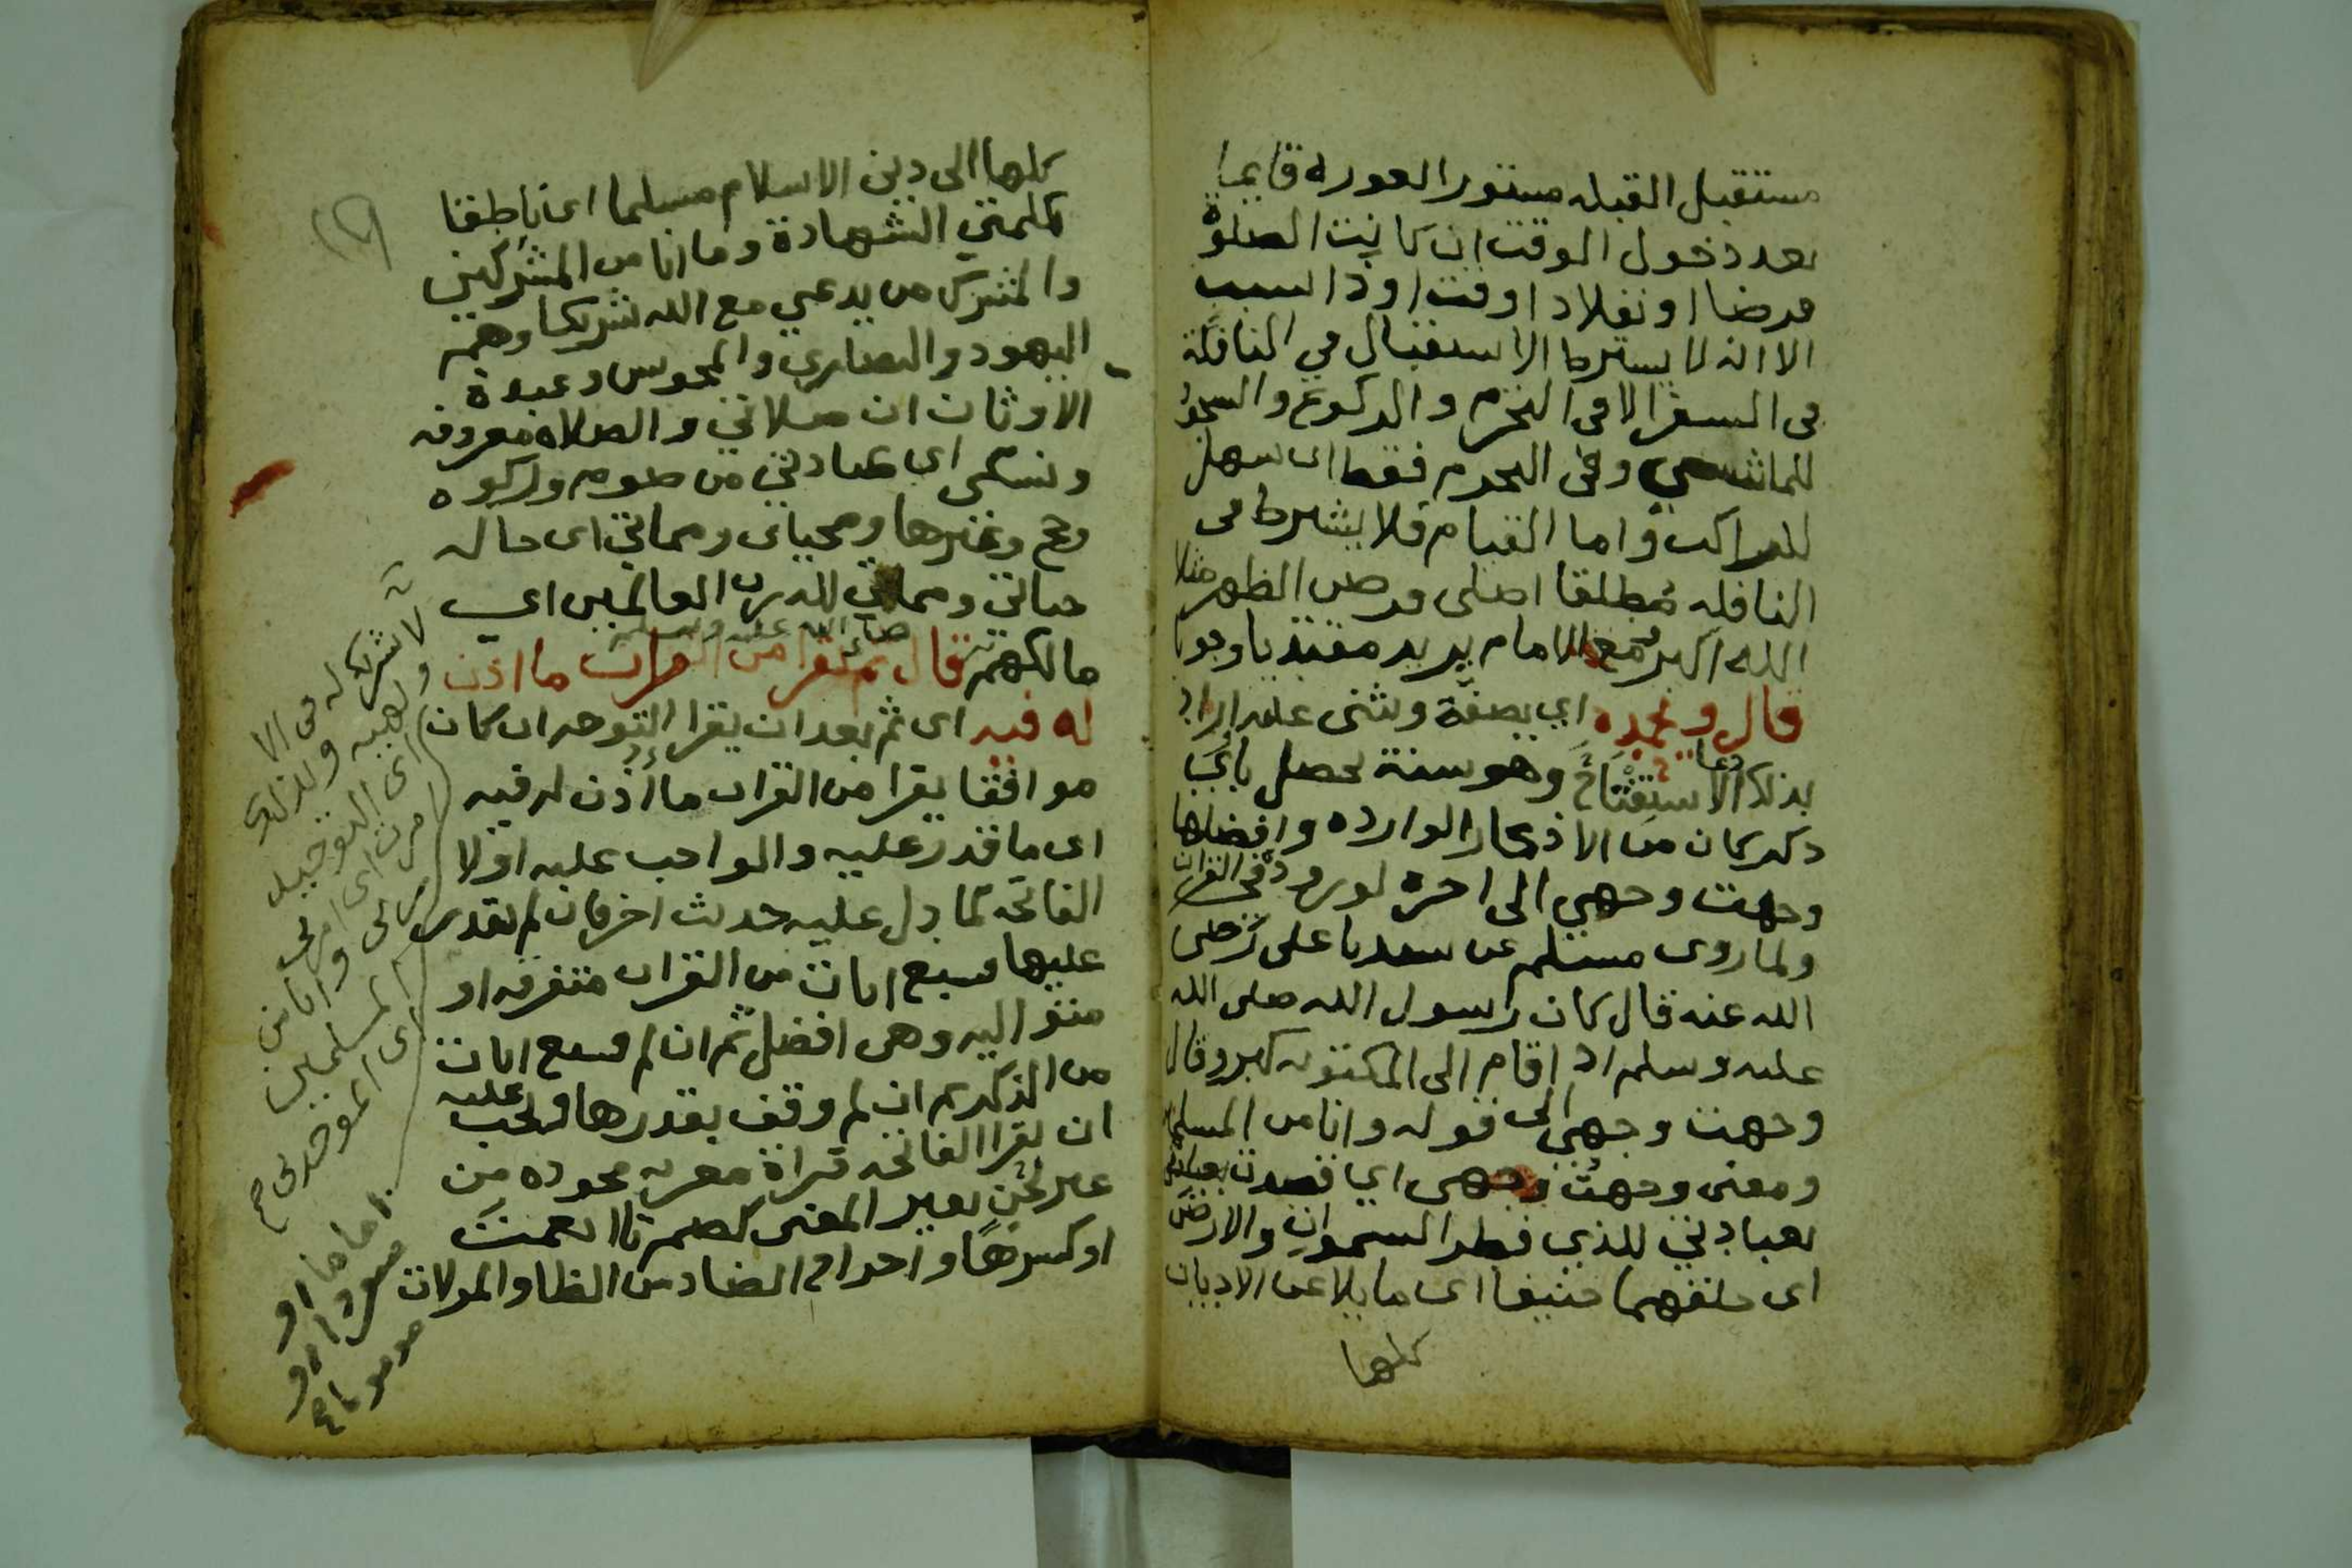 مستقبل القبله مستور العوره قايما
بعد دخول الوقت ان كانت الصلوة
فرضا او نفلا ذا وقت او ذا سبب
الا انه لا يشترط الاستقبال في النافلة
في السفر الا في التحرم والركوع والسجود
للماشي وفي التحرم فقط ان سهل
للراكب واما القيام فلا يشترط في
النافله مطلقا اصلي فرض الظهر مثلا
الله اكبر مع الامام يريد مقتديا وجوبا
قال ونحمده اي بصفة ويثني عليه اراد
بذلك دعا الاستفتاح وهو سنة يحصل باي
ذكر كان من الاذكار الوارده وافضلها
وجهت وجهي الى اخره لوروده في القران
ولما روى مسلم عن سيدنا علي رضي
الله عنه قال كان رسول الله صلى الله
عليه وسلم اذا قام الى المكتوبه كبر وقال
وجهت وجهي الى قوله وانا من المسلمين
ومعنى وجهت وجهي اي قصدت
بعبادتي للذي فطر السموات والارض
اي خلقهما حنيفا اي مايلا عن الاديان
كلها
كلها الى دين الاسلام مسلما اي ناطقا
بكلمتي الشهادة وما انا من المشركين
والمشرك من يدعي مع الله شريكا وهم
اليهود والنصارى والمجوس وعبدة
الاوثان ان صلاتي والصلاه معروفه
ونسكي اي عبادتي من صوم وزكوه
وحج وغيرها ومحياي ومماتي اي حاله
حياتي ومماتي لله رب العالمين اي
مالكهم قال صلى الله عليه وسلم ثم يقرا من القران ما اذن
له فيه اي ثم بعد ان يقرا التوجه ان كان
موافقا يقرا من القران ما اذن له فيه
اي ما قدر عليه والواجب عليه اولا
الفاتحه كما دل عليه حديث اخر فان لم يقدر
عليها فسبع ايات من القران متفرقه او
متواليه وهي افضل ثم ان لم فسبع ايات
من الذكر ثم ان لم وقف بقدرها ويجب عليه
ان يقرا الفاتحه قراة معربه مجوده من
غير لحن يغير المعنى كضم تا انعمت
او كسرها واخراج الضاد من الظا والمولات
لا شريك له في الا
لوهيه وبذلك
اي التوحيد
امرت اي امرني
ربي وانا من
المسلمين
اي الموحدين صح
اماما او
منفردا او
ماموما صح